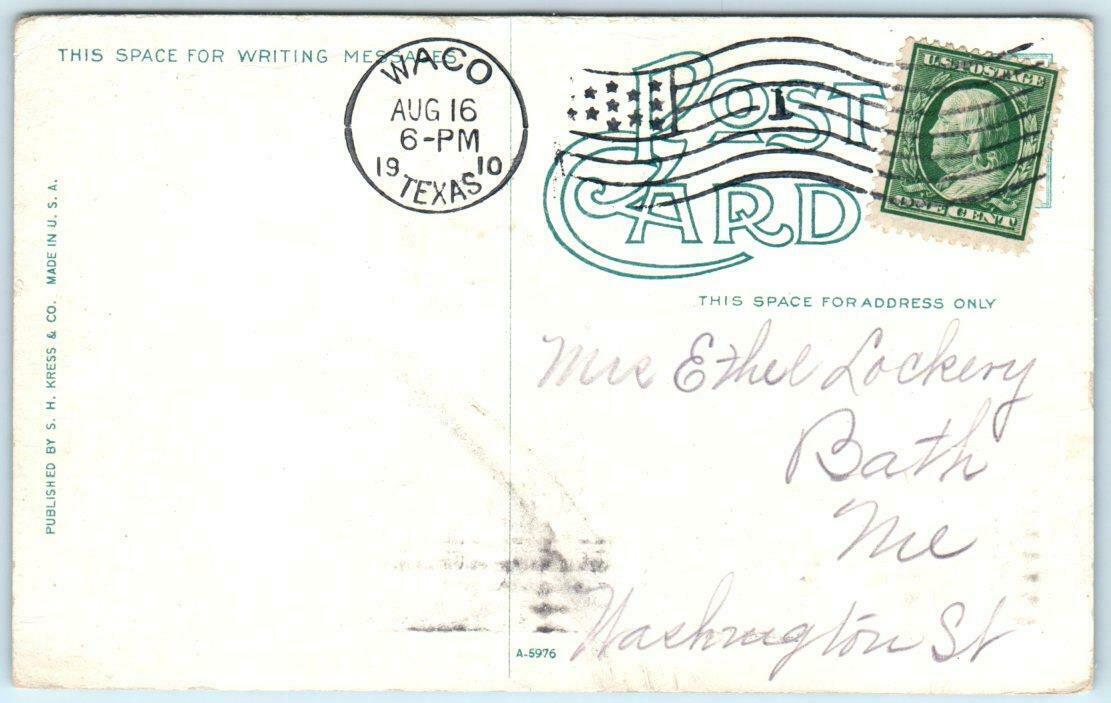 THIS SPACE FOR WRITING MESSAGES
WACO
AUG 16
6-PM
1910
TEXAS
1
POST
CARD
U.S. POSTAGE
ONE CENT
THIS SPACE FOR ADDRESS ONLY
Mrs Ethel Lockery
Bath
Me
Washington St
PUBLISHED BY S. H. KRESS & CO. MADE IN U. S. A.
A-5976